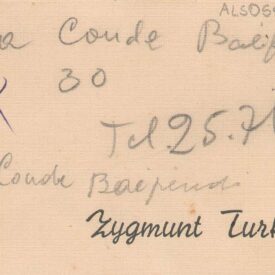 ALSOS
a Conde Baëp
30
Tel. 25.7
Conde Baependi
Zygmunt Turk